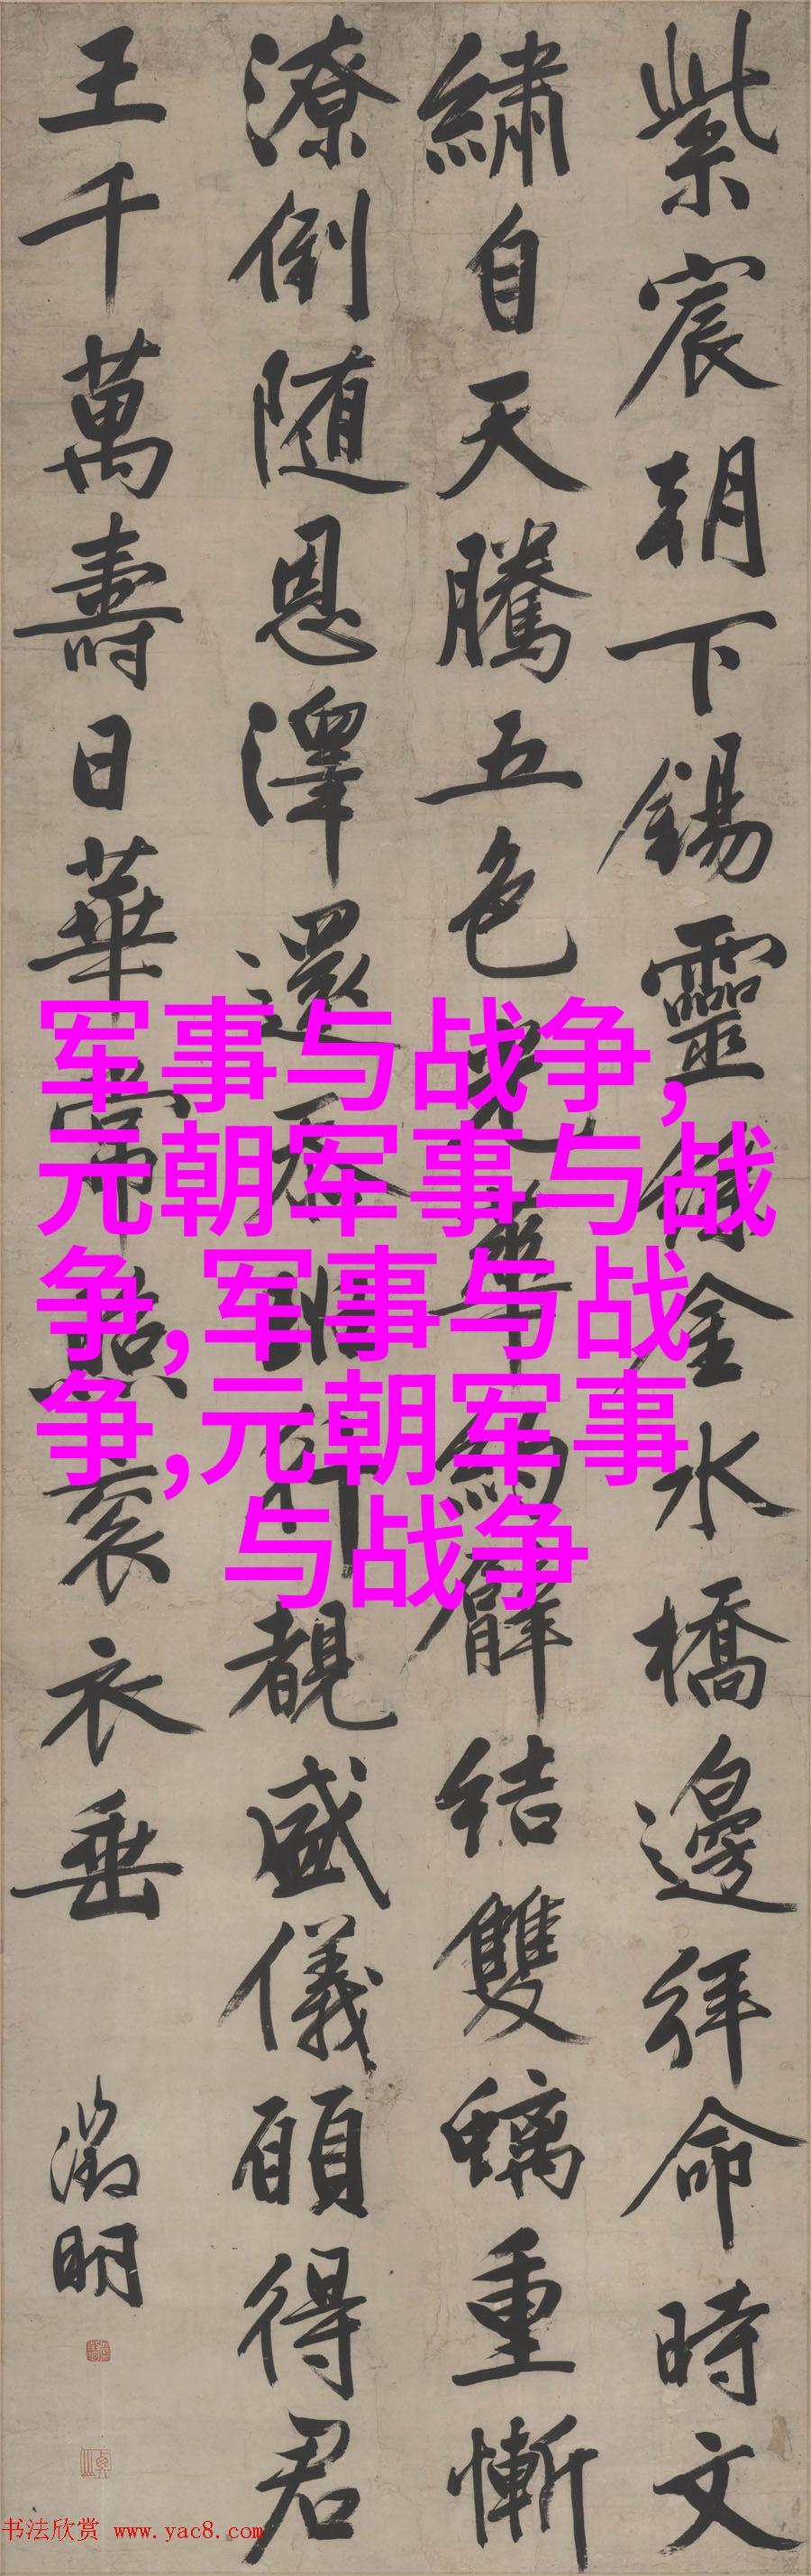 紫宸朝下錫靈金水橋邊拜命時文
繡自天騰五色光華約臂結雙螭重慚
潦倒随恩澤還忝班行覩盛儀願得君
王千萬壽日華常照袞衣垂
徵明
军事与战争,
元朝军事与战
争,军事与战
争,元朝军事
与战争
书法欣赏 www.yac8.com